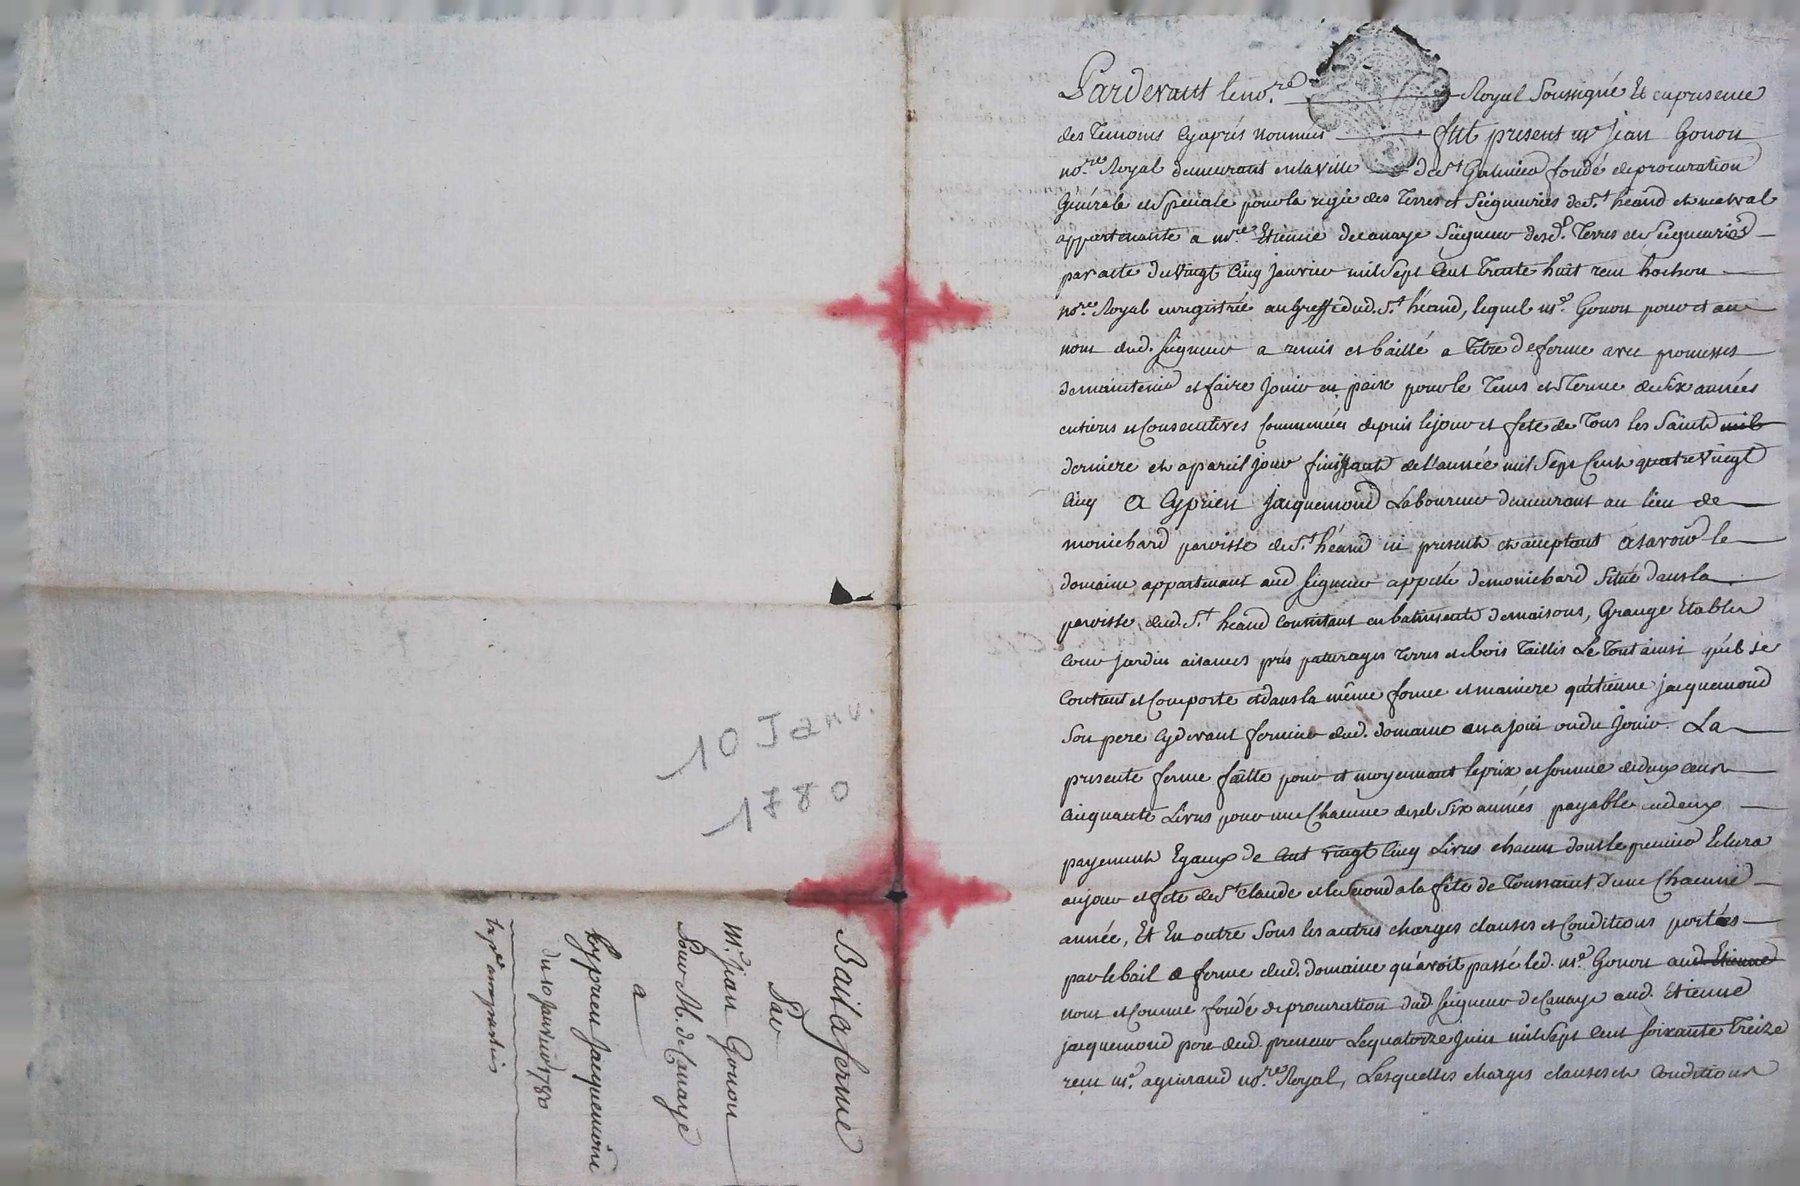 10 Janv.
1780
Bail a ferme
Par
Mr. jean Gonon
Pour M. de Canaye
a
Cyprien Jacquemond
du 10 Janvier 1780
Pardevant le no.re Royal Soussigné Et en presence
des Temoins Cyaprés nommés fut present mr jean Gonon
no.re Royal demeurant en la ville de St Galmier fondé de procuration
Générale et Speciale pour la regie des Terres et Seigneuries de St heand et
appartenante a mre Etienne decanaye Seigneur desd. Terres et Seigneuries
par acte du vingt Cinq Janvier mil Sept Cent Trente huit recu hochon
no.re Royal enregistrée au Greffe dud. St héand, lequel me. Gonon pour et au
nom dud. seigneur a remis et baillé a titre de ferme avec promesses
demaintenir et faire Jouir en paix pour le Tems et Terme de Six années
entieres et Consecutives Commencées depuis le jour et fete de Tous les Saints mil
derniere et a pareil jour finissant de l'année mil Sept Cent quatre vingt
Cinq a Cyprien jacquemond Laboureur demeurant au lieu de
monichard paroisse de St héand ici present et acceptant asavoir le
domaine appartenant aud seigneur appellé demonichard Situé dans la
paroisse dud. St heand Consistant en batiments de maisons, Grange Etables
Cour jardin aisances prés paturages terres et bois Taillis Le Tout ainsi qu'il se
Contient et Comporte et dans la même forme et maniere qu'etienne jacquemond
Son pere Cydevant fermier dud. domaine en a joui ou du jouir. La
presente ferme faitte pour et moyennant le prix et somme de deux cent
Cinquante Livres pour une Chacune desd. Six années payable en deux
payements Egaux de Cent vingt Cinq Livres chacun dont le premier Echera
au jour et fete de St claude et le Second a la fête de Toussaint d'une Chacune
année, Et En outre Sous les autres charges clauses et Conditions portées
par le bail a ferme dud. domaine qu'avoit passé led. me. Gonon aud Etienne
nom et Comme fondé de procuration dud seigneur de Canaye aud. Etienne
jacquemond pere dud. preneur Le quatorze juin mil Sept cent soixante Treize
recu me. aguirand no.re Royal, Lesquelles charges clauses et Conditions